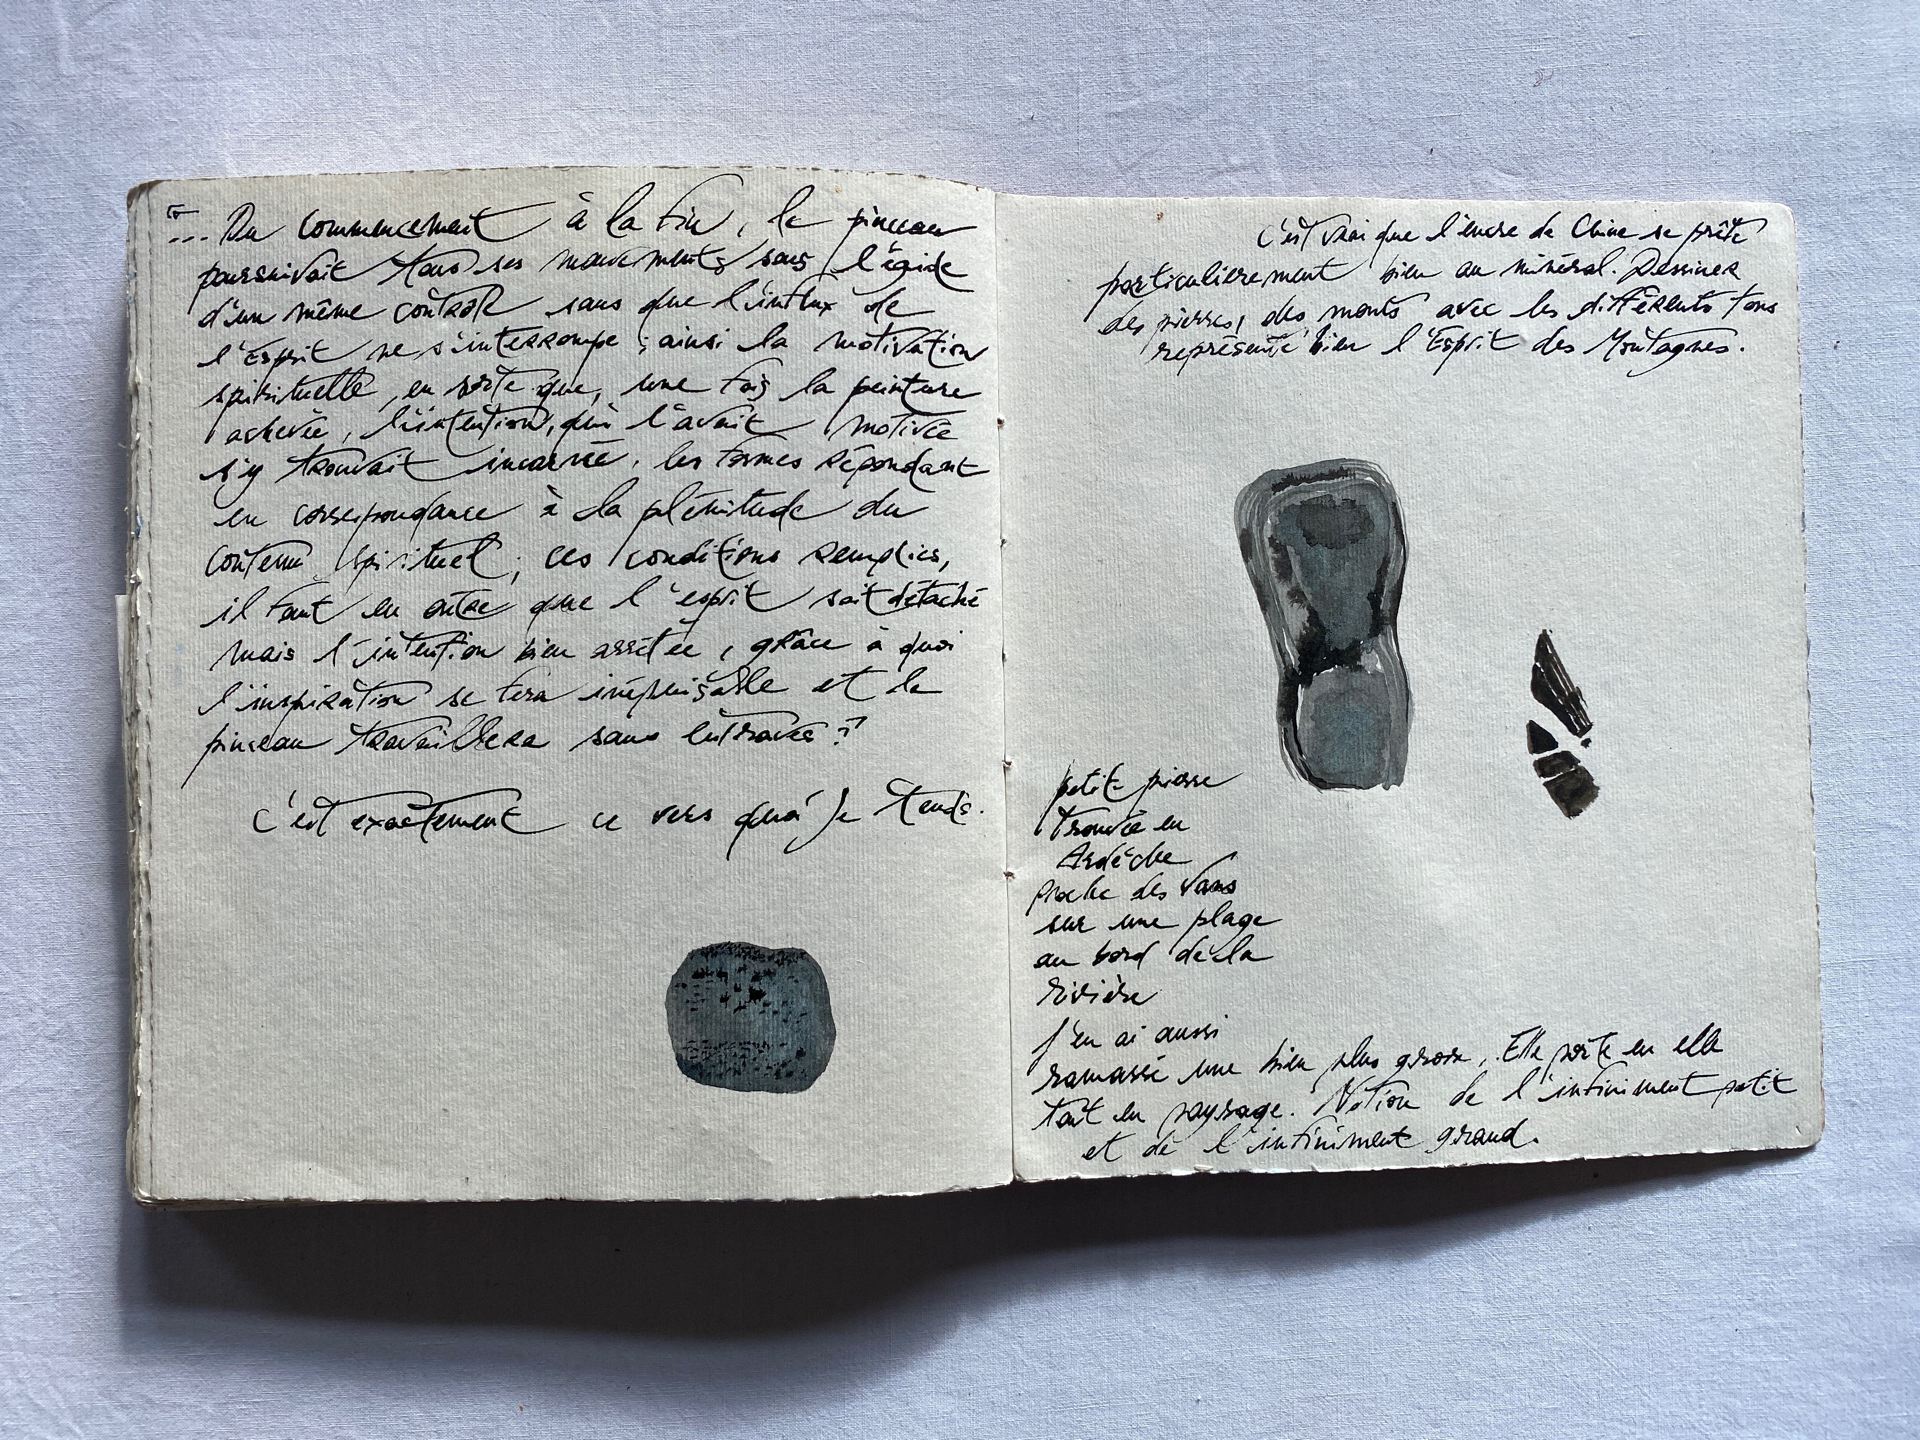 "... Du commencement à la fin, le pinceau
poursuivait tous ses mouvements sous l'égide
d'un même contrôle sans que l'influx de
l'Esprit ne s'interrompe ; ainsi la motivation
spirituelle, en sorte que, une fois la peinture
achevée, l'intention, qui l'avait motivée
s'y trouvait incarnée, les formes répondant
en correspondance à la plénitude du
contenu spirituel ; ces conditions remplies,
il faut en outre que l'esprit soit détaché
mais l'intention bien arrêtée, grâce à quoi
l'inspiration se fera inépuisable et le
pinceau travaillera sans entraves."
C'est exactement ce vers quoi je tends.
C'est vrai que l'encre de Chine se prête
particulièrement bien au minéral. Dessiner
des pierres, des monts avec les différents tons
représente bien l'Esprit des Montagnes.
petite pierre
trouvée en
Ardèche
proche des Vans
sur une plage
au bord de la
rivière
J'en ai aussi
ramassé une bien plus grosse. Elle porte en elle
tout un paysage. Notion de l'infiniment petit
et de l'infiniment grand.